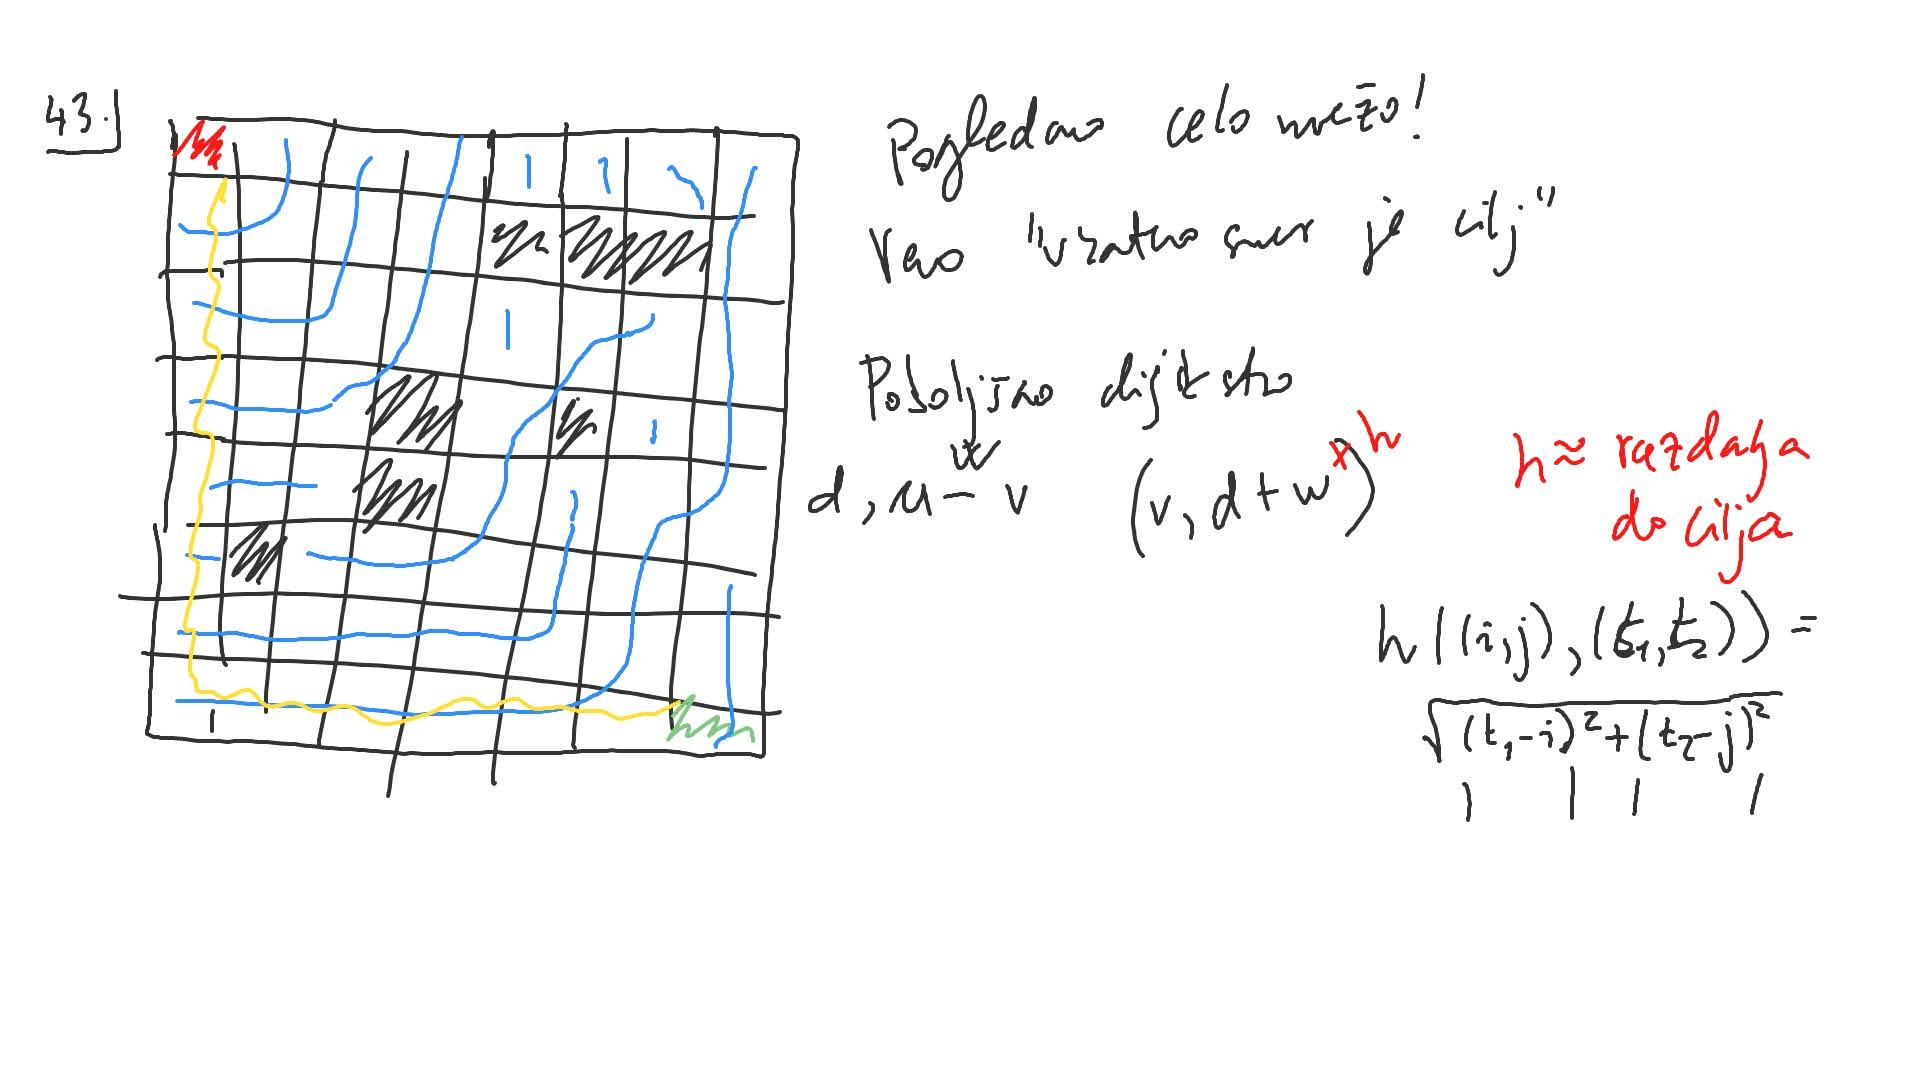 43.
Pogledamo celo mrežo!
Vemo "v katero smer je cilj"
Poboljšamo dijkstro
w
d, u – v (v, d + w + h)
h ≈ razdalja
do cilja
h((i,j), (t₁, t₂)) =
√(t₁-i)² + (t₂-j)²